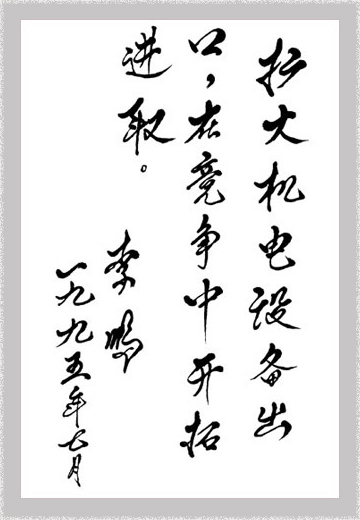 扩大机电设备出
口，在竞争中开拓
进取。
李鹏
一九九五年七月